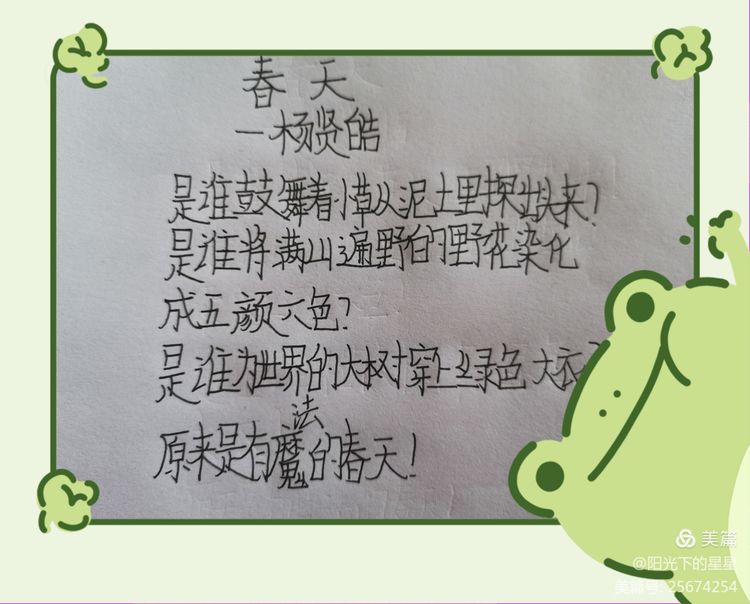 春天
一杨贤皓
是谁鼓舞着小草从泥土里探出头来?
是谁将满山遍野的野花染化
成五颜六色?
是谁为世界的大树穿上绿色大衣?
法
原来是有魔的春天!
美篇
@阳光下的星星
美篇号:25674254